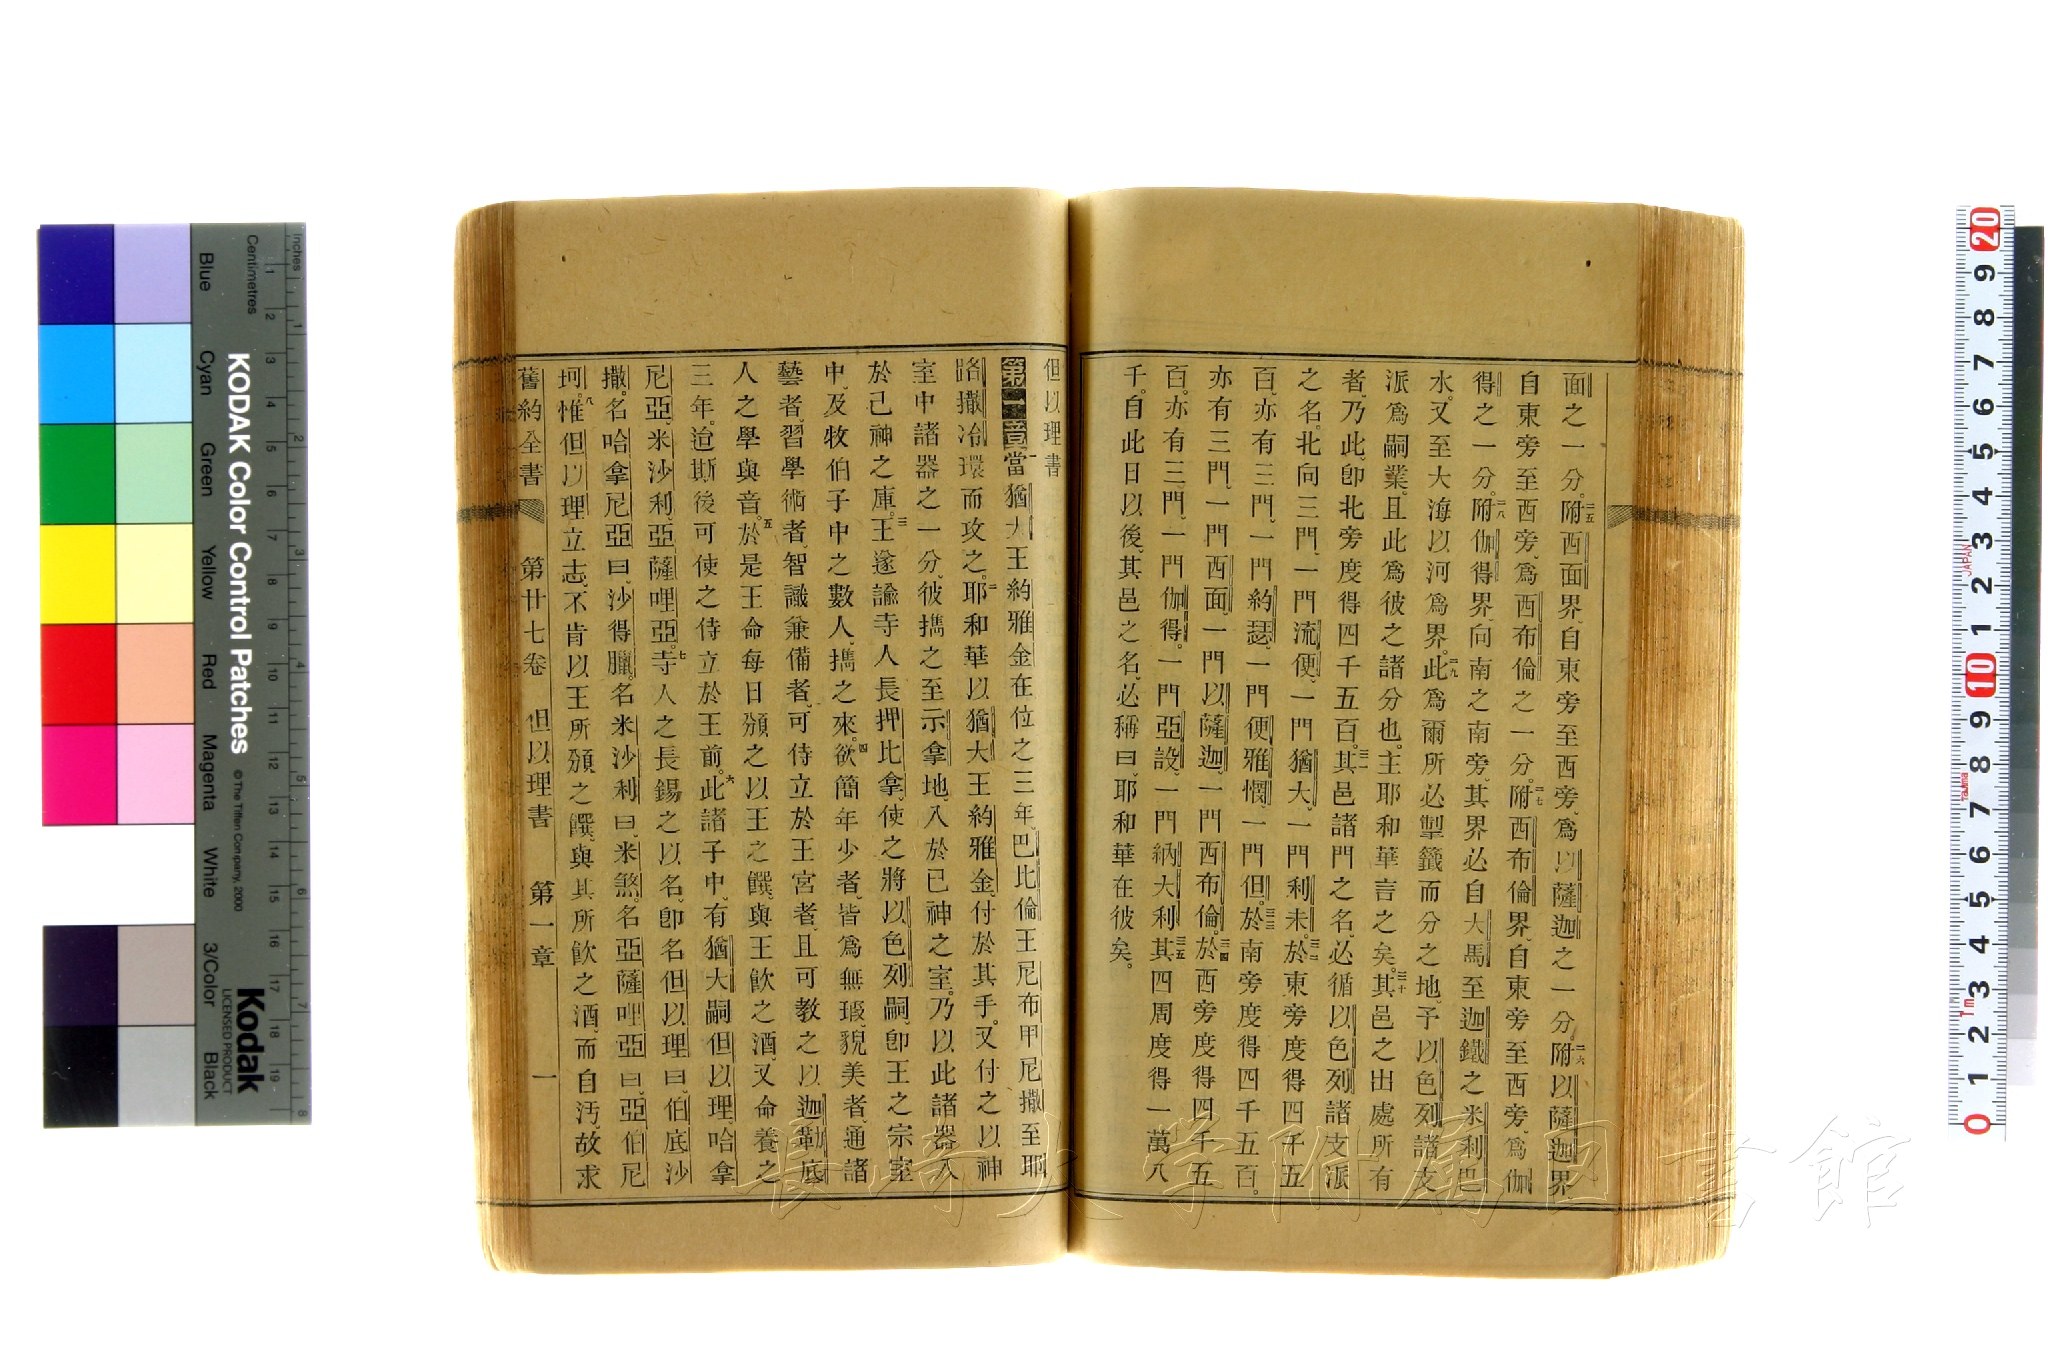 面之一分。二五附西面界、自東旁至西旁、爲以薩迦之一分。二六附以薩迦界、
自東旁至西旁、爲西布倫之一分。二七附西布倫界、自東旁至西旁、爲伽
得之一分。二八附伽得界、向南之南旁、其界必自大馬至迦鐵之米利巴
水、又至大海以河爲界。二九此爲爾所必掣籤而分之地、予以色列諸支
派爲嗣業、且此爲彼之諸分也。主耶和華言之矣。三十其邑之出處所有
者、乃此、卽北旁度得四千五百。三一其邑諸門之名、必循以色列諸支派
之名。北向三門、一門流便、一門猶大、一門利未。三二於東旁度得四千五
百、亦有三門、一門約瑟、一門便雅憫、一門但。三三於南旁度得四千五百。
亦有三門、一門西面、一門以薩迦、一門西布倫。三四於西旁度得四千五
百。亦有三門、一門伽得。一門亞設、一門納大利。三五其四周度得一萬八
千。自此日以後、其邑之名、必稱曰、耶和華在彼矣。
但以理書
第一章 一當猶大王約雅金在位之三年、巴比倫王尼布甲尼撒至耶
路撒冷、環而攻之。二耶和華以猶大王約雅金、付於其手。又付之以神
室中諸器之一分、彼攜之至示拿地、入於己神之室。乃以此諸器入
於己神之庫。三王遂諭寺人長押比拿、使之將以色列嗣、卽王之宗室
中、及牧伯子中之數人、攜之來。四欲簡年少者、皆爲無瑕、貌美者、通諸
藝者、習學術者、智識兼備者、可侍立於王宮者、且可教之以迦勒底
人之學與音。五於是王命每日頒之以王之饌、與王飲之酒、又命養之
三年。迨斯後可使之侍立於王前。六此諸子中、有猶大嗣但以理、哈拿
尼亞、米沙利、亞薩哩亞。七寺人之長錫之以名、卽名但以理曰、伯底沙
撒。名哈拿尼亞曰、沙得臘。名米沙利曰、米煞。名亞薩哩亞曰、亞伯尼
珂。八惟但以理立志、不肯以王所頒之饌、與其所飲之酒、而自汚、故求
舊約全書 第廿七卷 但以理書 第一章 一
長崎大学附属図書館
KODAK Color Control Patches
© The Tiffen Company, 2000
Kodak
LICENSED PRODUCT
Inches
Centimetres
Blue Cyan Green Yellow Red Magenta White 3/Color Black
JAPAN